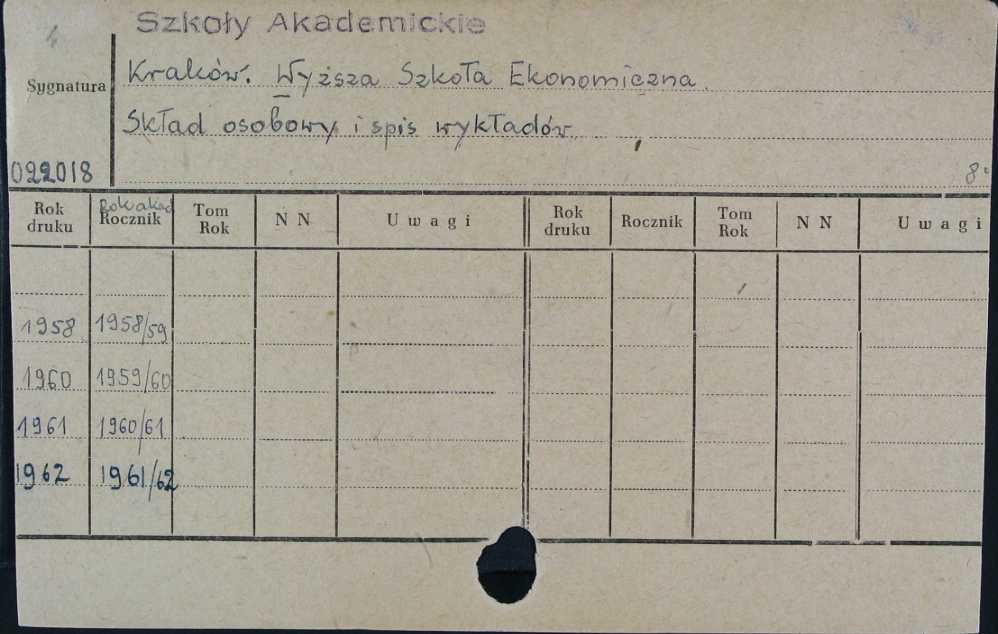 Szkoły Akademickie
4
Sygnatura
Kraków. Wyższa Szkoła Ekonomiczna.
Skład osobowy i spis wykładów.
022018
8°
Rok druku Rok akad Rocznik Tom Rok N N Uwagi Rok druku Rocznik Tom Rok N N Uwagi
1958 1958/59
1960 1959/60
1961 1960/61
1962 1961/62